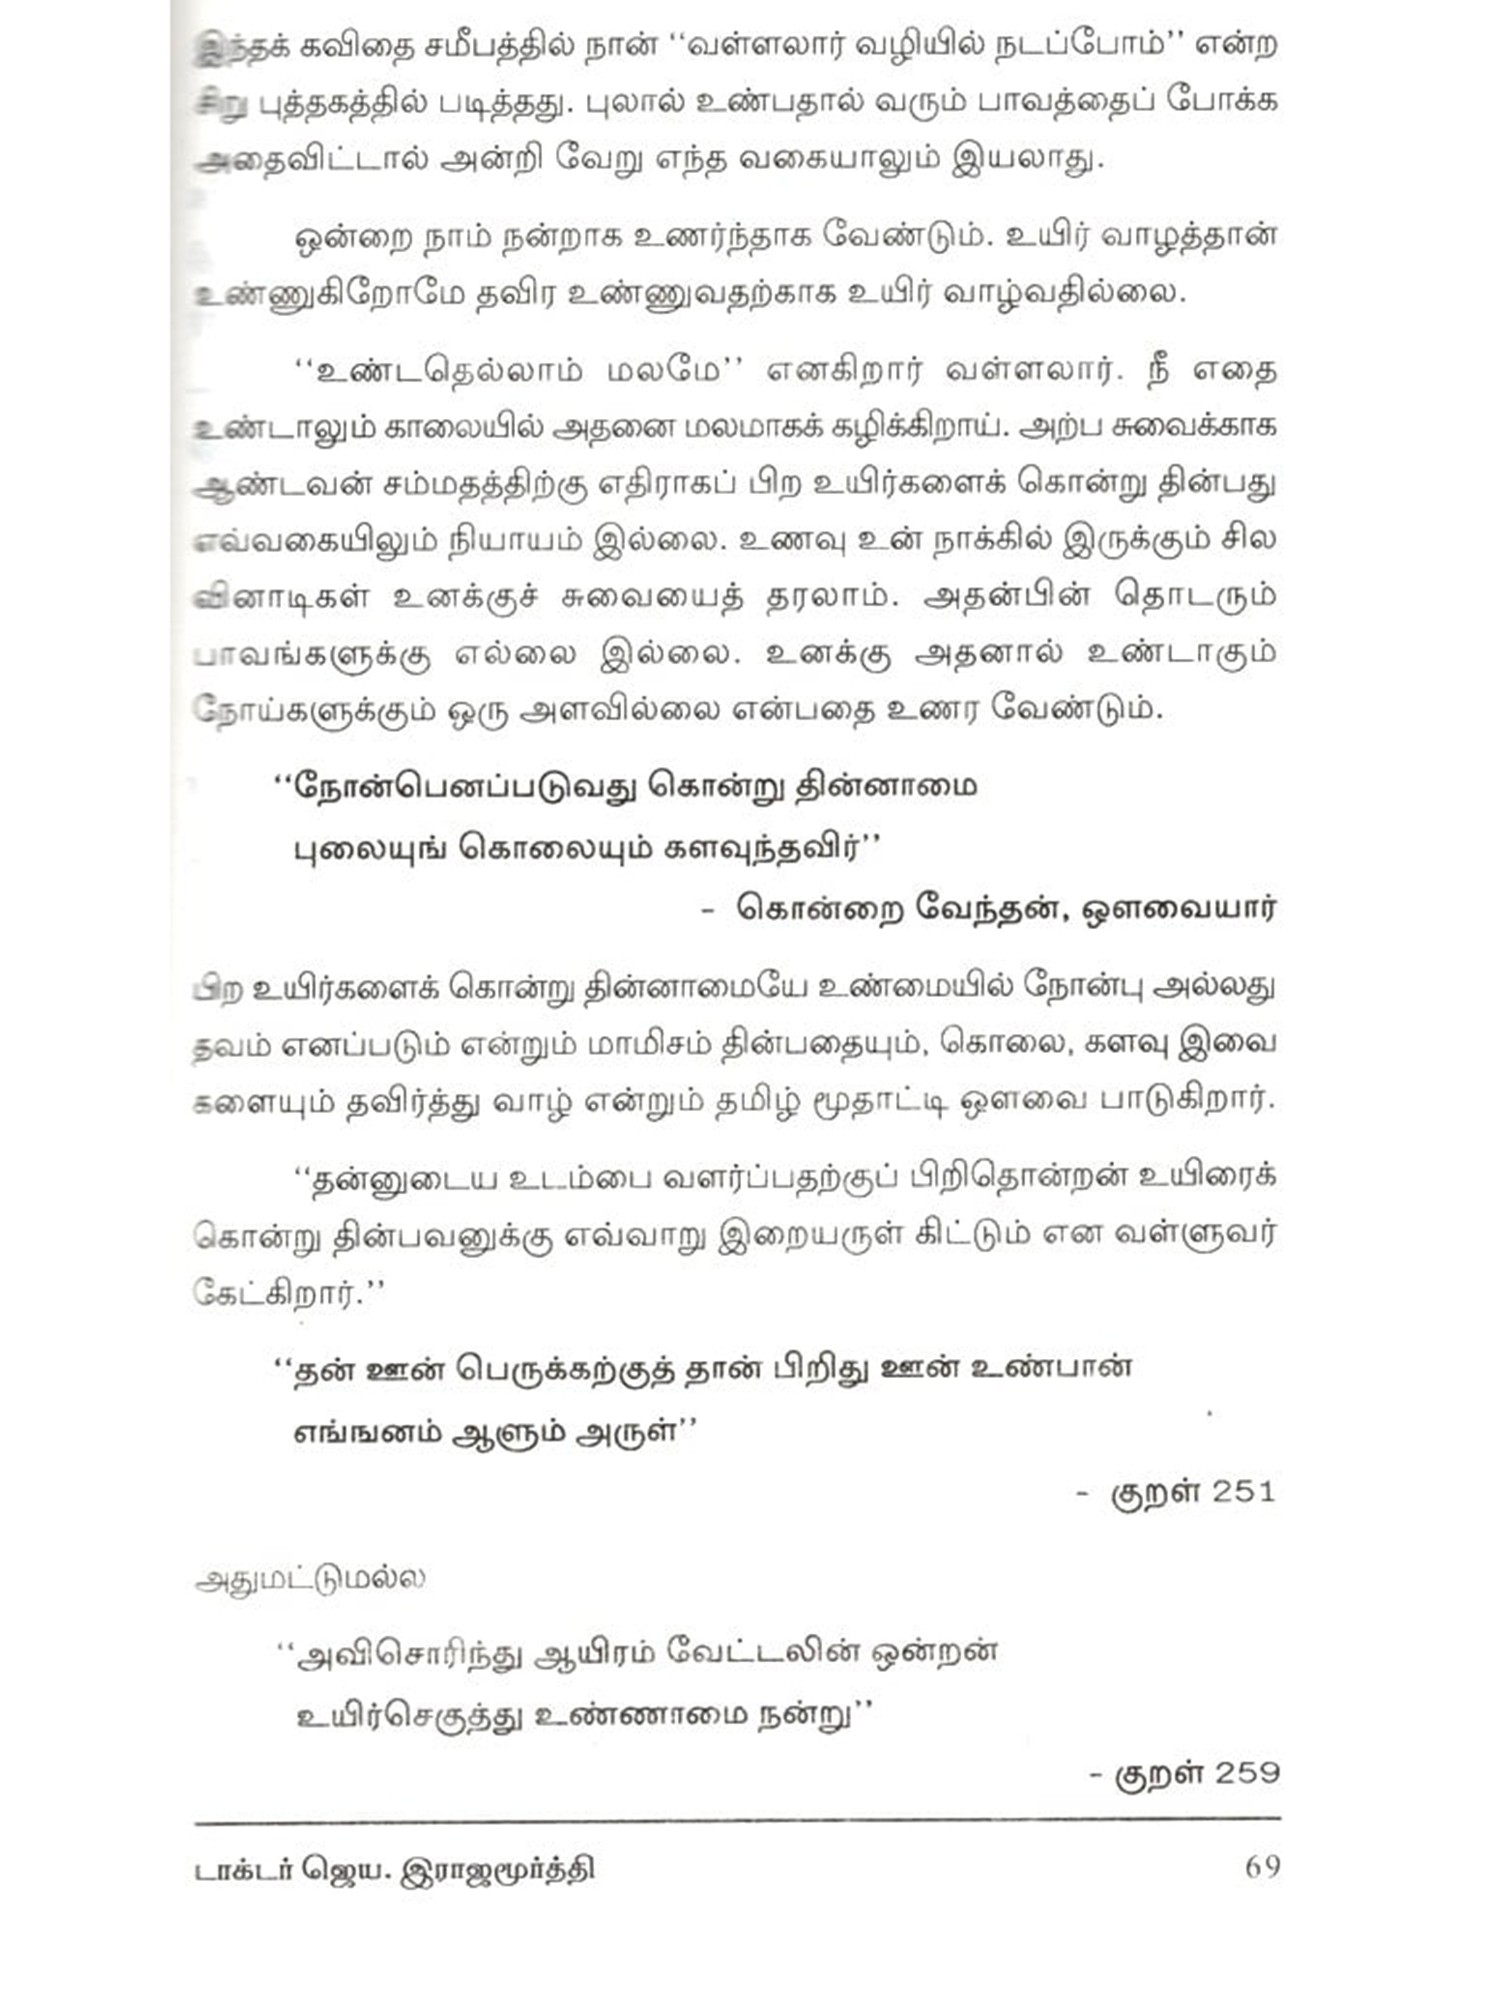 இந்தக் கவிதை சமீபத்தில் நான் ‘‘வள்ளலார் வழியில் நடப்போம்’’ என்ற
சிறு புத்தகத்தில் படித்தது. புலால் உண்பதால் வரும் பாவத்தைப் போக்க
அதைவிட்டால் அன்றி வேறு எந்த வகையாலும் இயலாது.
ஒன்றை நாம் நன்றாக உணர்ந்தாக வேண்டும். உயிர் வாழத்தான்
உண்ணுகிறோமே தவிர உண்ணுவதற்காக உயிர் வாழ்வதில்லை.
‘‘உண்டதெல்லாம் மலமே’’ எனகிறார் வள்ளலார். நீ எதை
உண்டாலும் காலையில் அதனை மலமாகக் கழிக்கிறாய். அற்ப சுவைக்காக
ஆண்டவன் சம்மதத்திற்கு எதிராகப் பிற உயிர்களைக் கொன்று தின்பது
எவ்வகையிலும் நியாயம் இல்லை. உணவு உன் நாக்கில் இருக்கும் சில
வினாடிகள் உனக்குச் சுவையைத் தரலாம். அதன்பின் தொடரும்
பாவங்களுக்கு எல்லை இல்லை. உனக்கு அதனால் உண்டாகும்
நோய்களுக்கும் ஒரு அளவில்லை என்பதை உணர வேண்டும்.
‘‘நோன்பெனப்படுவது கொன்று தின்னாமை
புலையுங் கொலையும் களவுந்தவிர்’’
- கொன்றை வேந்தன், ஔவையார்
பிற உயிர்களைக் கொன்று தின்னாமையே உண்மையில் நோன்பு அல்லது
தவம் எனப்படும் என்றும் மாமிசம் தின்பதையும், கொலை, களவு இவை
களையும் தவிர்த்து வாழ் என்றும் தமிழ் மூதாட்டி ஔவை பாடுகிறார்.
‘‘தன்னுடைய உடம்பை வளர்ப்பதற்குப் பிறிதொன்றன் உயிரைக்
கொன்று தின்பவனுக்கு எவ்வாறு இறையருள் கிட்டும் என வள்ளுவர்
கேட்கிறார்.’’
‘‘தன் ஊன் பெருக்கற்குத் தான் பிறிது ஊன் உண்பான்
எங்ஙனம் ஆளும் அருள்’’
- குறள் 251
அதுமட்டுமல்ல
‘‘அவிசொரிந்து ஆயிரம் வேட்டலின் ஒன்றன்
உயிர்செகுத்து உண்ணாமை நன்று’’
- குறள் 259
டாக்டர் ஜெய. இராஜமூர்த்தி
69